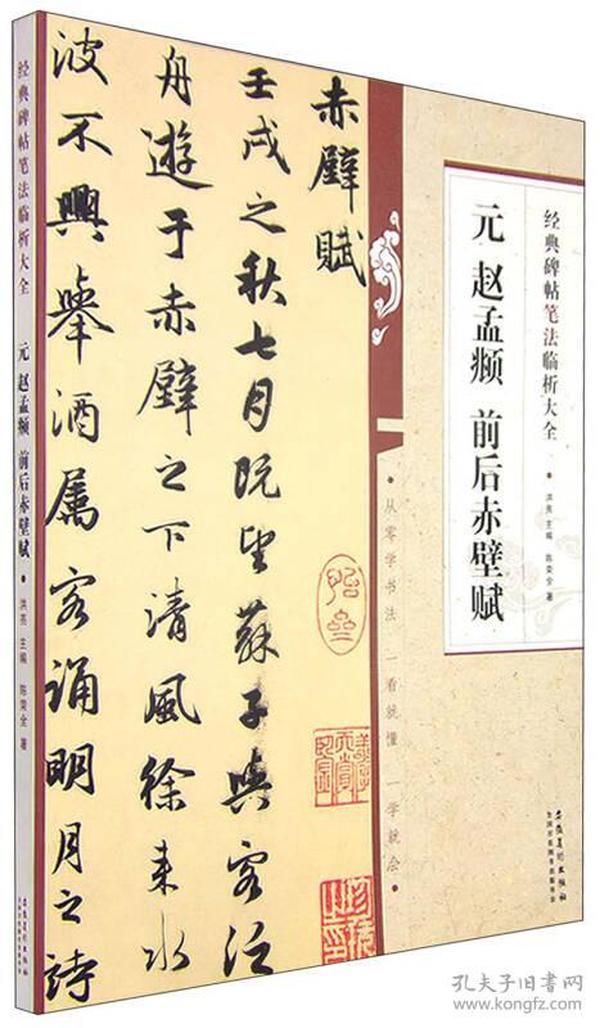 经典碑帖笔法临析大全
元 赵孟頫 前后赤壁赋
洪亮 主编 陈荣全 著
安徽美术出版社
赤壁赋
壬戌之秋七月既望蘇子與客泛
舟遊于赤壁之下清風徐来水
波不興舉酒属客诵明月之詩
经典碑帖笔法临析大全
•洪亮 主编 陈荣全 著
元 赵孟頫 前后赤壁赋
•从零学书法 一看就懂 一学就会•
安徽美术出版社
全国百佳图书出版单位
孔夫子旧书网
www.kongfz.com